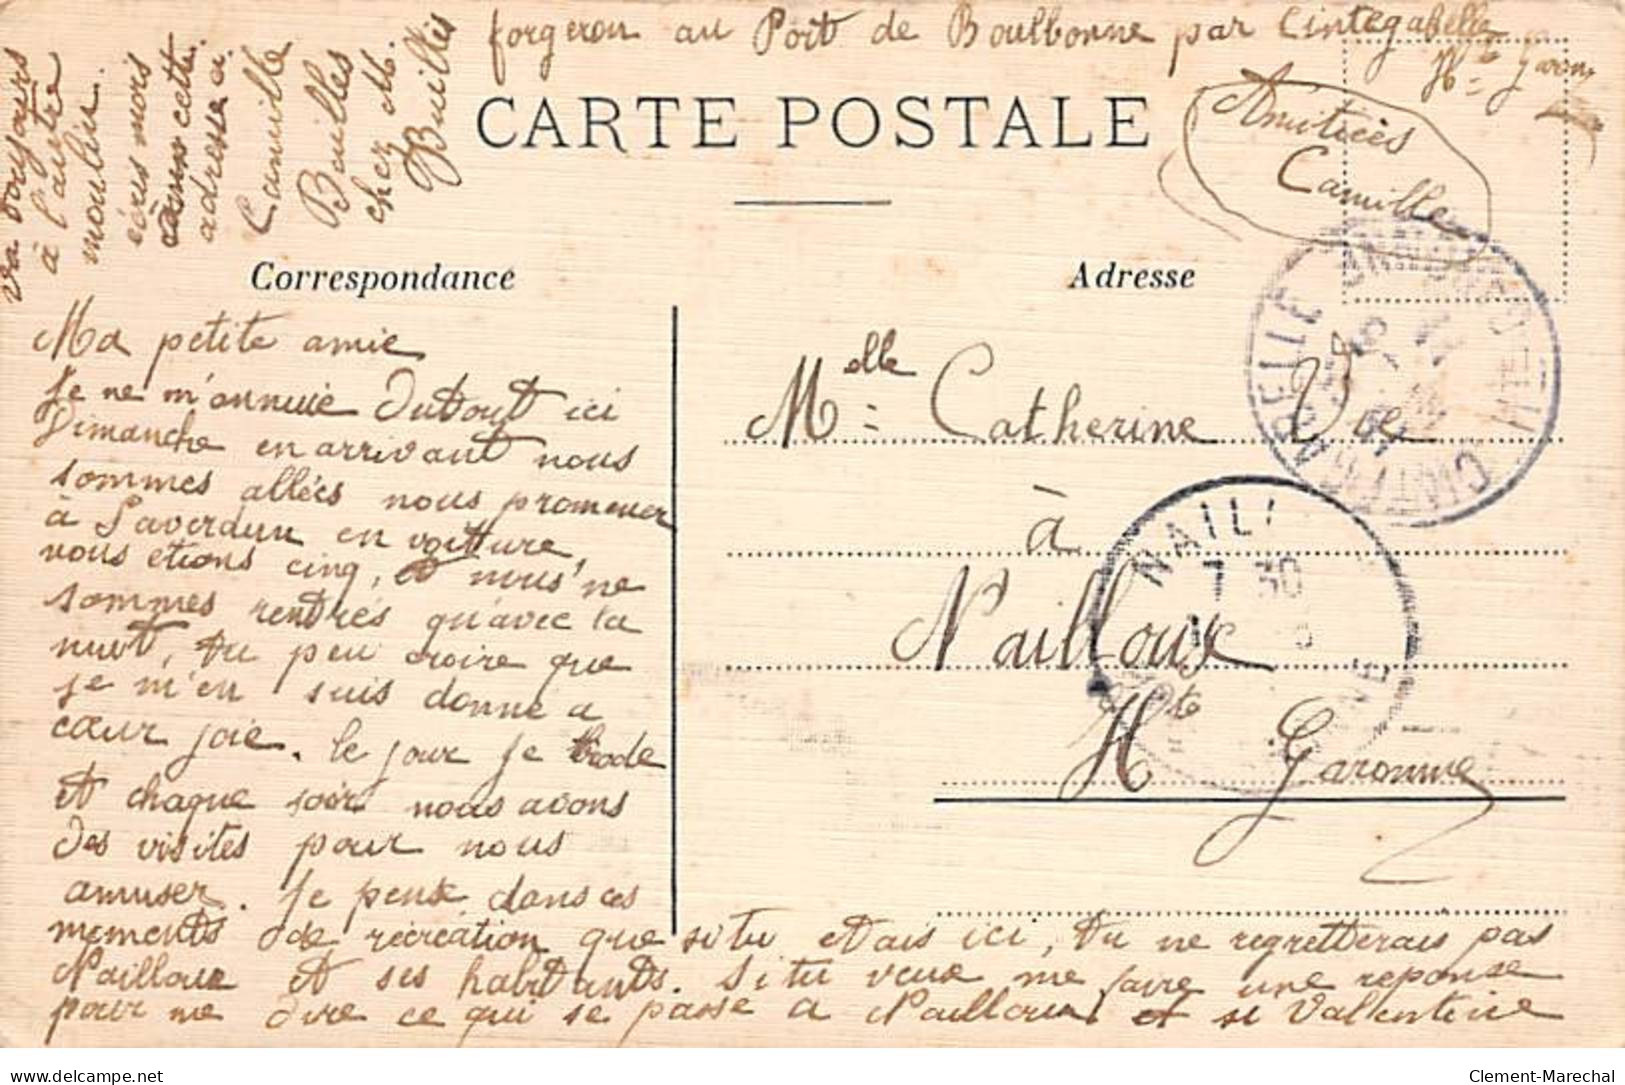 CARTE POSTALE
Correspondance
Adresse
Ma petite amie
Je ne m'ennuie Dutout ici
Dimanche en arrivant nous
sommes allées nous promener
à Saverdun en voitture,
nous etions cinq, et nous ne
sommes rentrés qu'avec la
nuit, tu peu croire que
je m'en suis donné a
cœur joie. le jour je brode
et chaque soir nous avons
des visites pour nous
amuser. Je pense dans ces
mements de récréation que si tu etais ici, tu ne regretterais pas
Nailloux et ses habitants. Si tu veux me faire une reponse
pour me dire ce qui se passe a Nailloux et si Valentine
va toujours
à l'autre
moulin.
écris mois
à cette
adresse ci.
Camille
Bouilles
chez M.
Buillis
forgeron au Port de Boulbonne par Cintegabelle
Hte Garonne
Amitiées
Camille
Melle Catherine
à
Nailloux
Hte Garonne
NAILL
7 30
Clement-Marechal